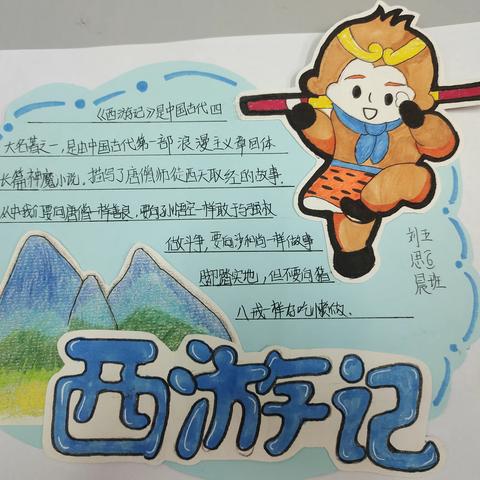 《西游记》是中国古代四
大名著之一,是由中国古代第一部浪漫主义章回体
长篇神魔小说,描写了唐僧师徒西天取经的故事.
从中我们要向唐僧一样善良,要向孙悟空一样敢于与强权
做斗争,要向沙和尚一样做事
脚踏实地,但不要向猪
八戒一样好吃懒做.
刘玉
思
晨班
西游记